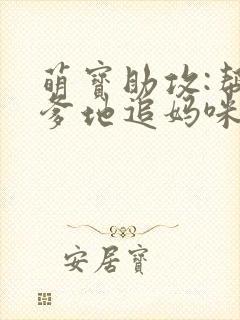 萌寶助攻:幫
爹地追媽咪
安居寶